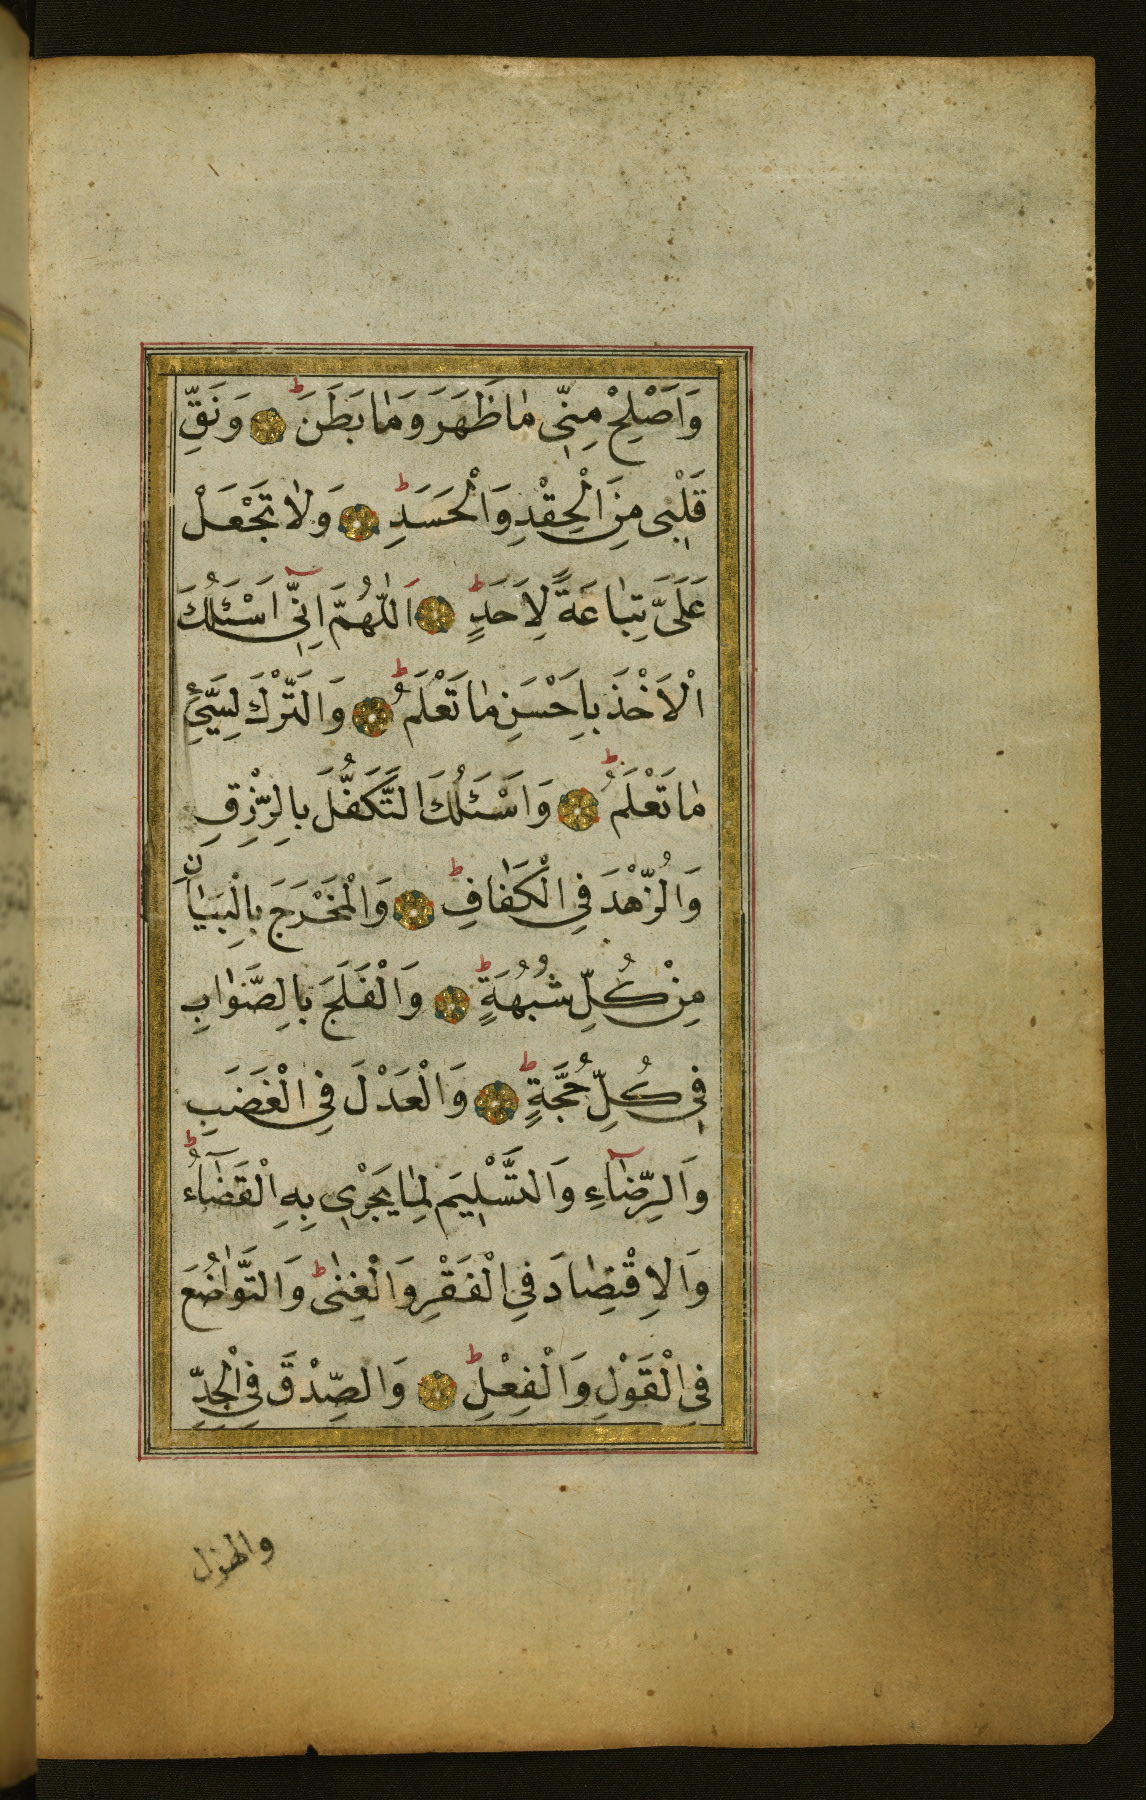 وَاَصْلِحْ مِنِّي مٰا ظَهَرَ وَمٰا بَطَنَ ط وَنَقِّ
قَلْبِي مِنَ الْحِقْدِ وَالْحَسَدِ ط وَلٰا تَجْعَلْ
عَلَيَّ تِبٰاعَةً لِاَحَدٍ ط اَللّٰهُمَّ اِنِّي اَسْئَلُكَ
الْاَخْذَ بِاَحْسَنِ مٰا تَعْلَمُ ط وَالتَّرْكَ لِسَيِّئِ
مٰا تَعْلَمُ ط وَاَسْئَلُكَ التَّكَفُّلَ بِالرِّزْقِ
وَالزُّهْدَ فِي الْكَفٰافِ ط وَالْمَخْرَجَ بِالْبَيٰانِ
مِنْ كُلِّ شُبُهَةٍ ط وَالْفَلَجَ بِالصَّوٰابِ
فِي كُلِّ حُجَّةٍ ط وَالْعَدْلَ فِي الْغَضَبِ
وَالرِّضٰآءِ وَالتَّسْلِيمَ لِمٰا يَجْرِي بِهِ الْقَضٰٓاءُ ط
وَالاِقْتِصٰادَ فِي الْفَقْرِ وَالْغِنٰى ط وَالتَّوٰاضُعَ
فِي الْقَوْلِ وَالْفِعْلِ ط وَالصِّدْقَ فِي الْجِدِّ
والهزل